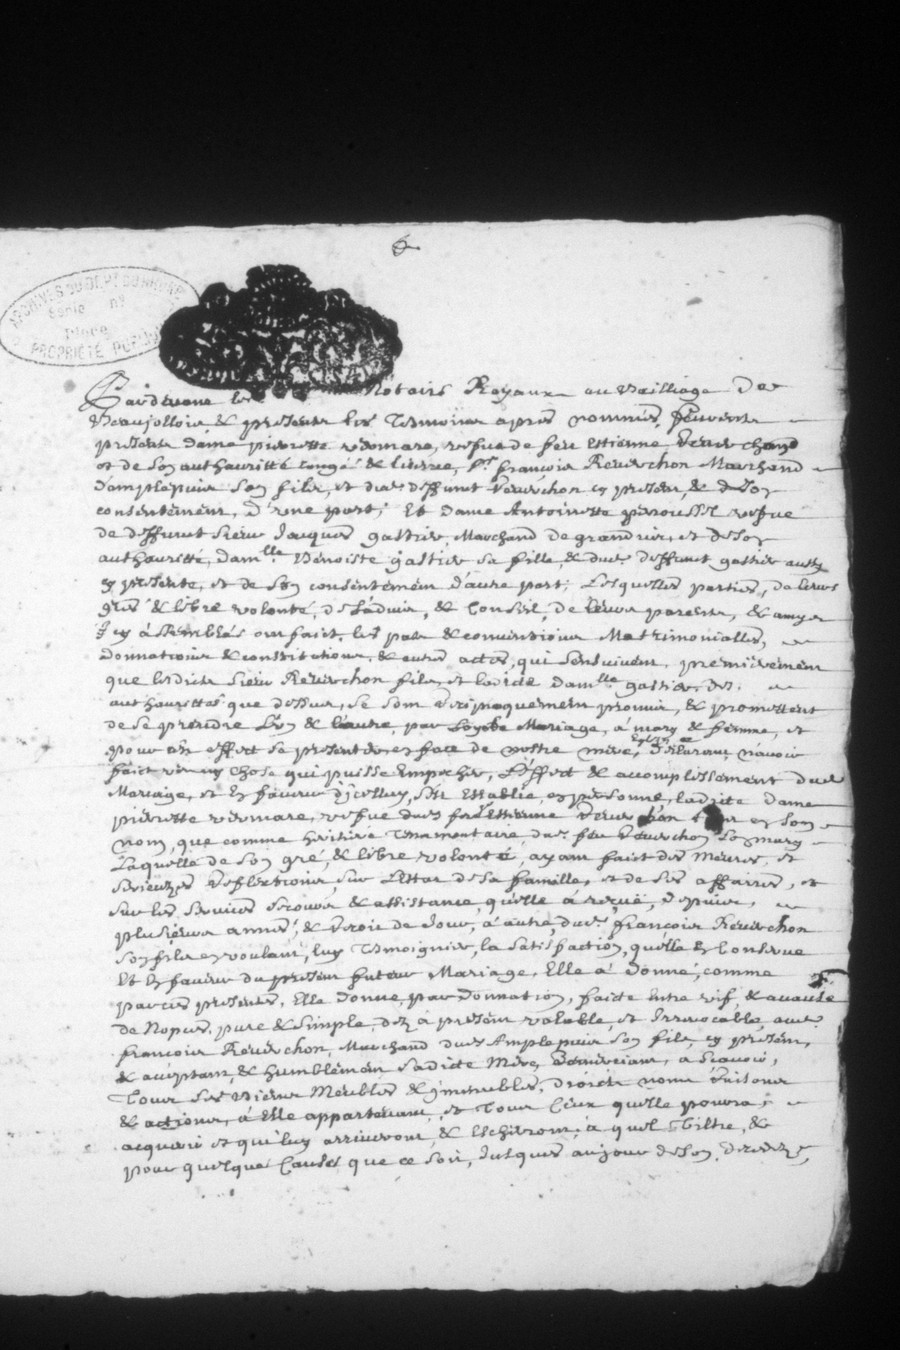 ARCHIVES DU DEPT DU RHONE
Série nº
Pièce
PROPRIÉTÉ PUBLIQUE
Pardevant les Notaires Royaux au Bailliage De
Beaujollois & présents les Tesmoins apres nommés, feurent
presente dame pierrette vermare, vefve de feu Estienne Reverchond
et de son authauritté congé & licence, Sr. françois Reverchon Marchand
damplepuis son fils, et dud. deffunt Reverchon cy present, & de son
consentement, d'vne part; Et dame Antoinette perroussel vefve
de deffunt sieur Jacques gastier, Marchand de grandris, et de son
authauritté, damlle Benoiste gastier sa fille, & dud. deffunt gastier aussy
cy presente, et de son consentement d'autre part; Lesquelles parties, de leurs
grés & libre volonté, de l'aduis, & Conseil, de leurs parents, & amys
cy assemblés ont faict, les pats & conventions Matrimonialles,
donnations & constitutions, & autres actes, qui sensuivent. premierement
que ledict sieur Reverchon fils, et ladicte damlle gastier, des.
authaurittés que dessus, se sont réciproquement promis, & promettent
de se prendre L'un & l'autre, par Loyale Mariage, a mary & femme, et
pour cet effect se presenter en face de nostre mère, Eglize declarant n'avoir
faict ny chose qui puisse Empecher, L'effect & accomplissement dud.
Mariage, et En faveur d'jcelluy, s'est establie, en personne, ladite dame
pierrette vermare, vefve dud. feu Estienne en son
nom, que comme heritiere Testamentaire, dud. feu Reverchon son mary
Laquelle de son gré, & libre volonté, ayant faict des meures, et
serieuzes reflections, sur L'estat de sa famille, et de ses affaires, et
sur les services secours & assistance, qu'elle a reçue, depuis,
plusieurs années, & reçoit de jour, à autre, dud. françois Reverchon
son fils en voulant, luy Tesmoigner, la satisfaction, quelle en Conserve
Et En faveur du present futeur Mariage, Elle a donné, comme
par ces presentes, Elle donne, par donnation, faicte Entre vif, & avant
de Nopces, pure & simple, dez à present valable, et Irrevocable, aud.
françois Reverchon, Marchand dud. Amplepuis son fils, cy present,
& acceptant, & humblement sadicte Mère, Remerciant, a sçavoir,
Tous ses Biens Meubles & jmmeubles, droicts noms raisons
& actions, à Elle appartenant, et Tous Ceux quelle pourra;
acquerir et qui luy arriveront, & Escherront, à quel Tiltre, &
pour quelque Causes que ce soit, Jusques au jour de son decedz,